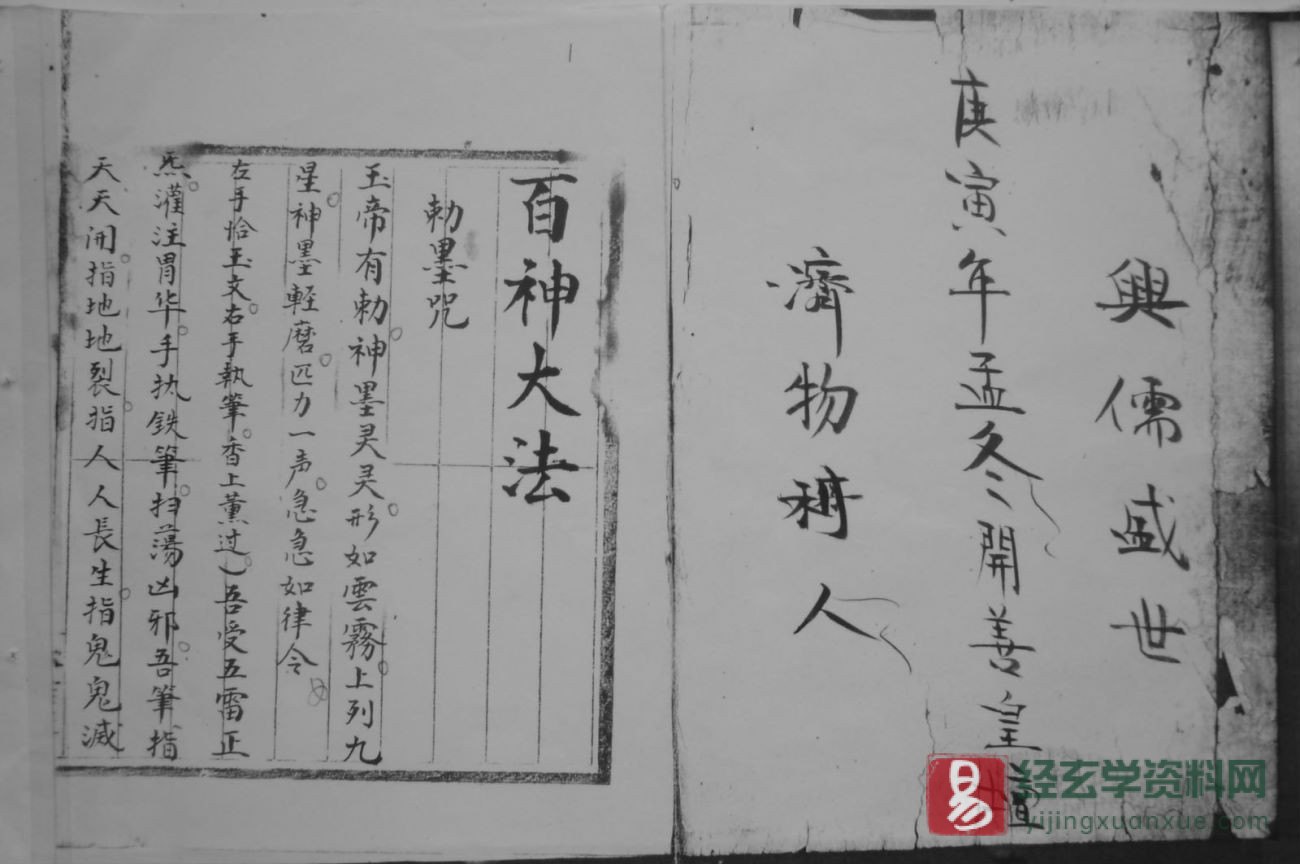 興儒盛世
庚寅年孟冬開善皇壇
濟物 人
百神大法
勅墨咒
玉帝有勅神墨灵灵形如雲霧上列九
星神墨輕磨匹力一声急急如律令
左手恰玉文右手執筆香上薰过吾受五雷正
炁灌注胃华手执鉄筆扫蕩凶邪吾筆指
天天開指地地裂指人人長生指鬼鬼滅
易
经玄学资料网
yijingxuanxue.com